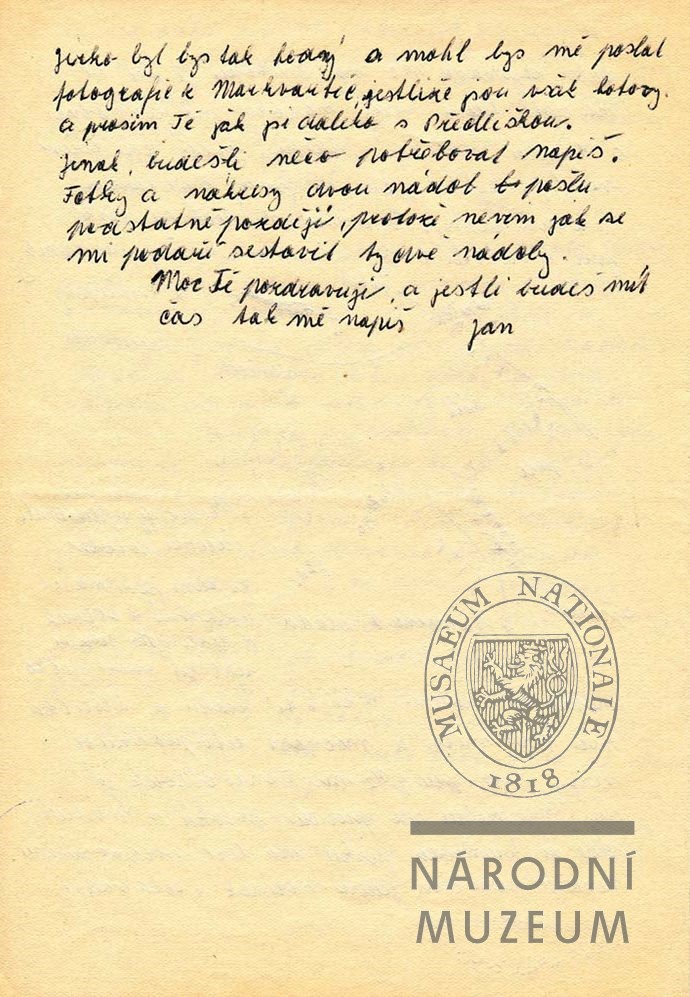 Jirko byl bys tak hodný a mohl bys mě poslat
fotografie z Markvartic, jestliže jsou však hotovy.
a prosím Tě jak je daleko s Předliškou.
Jinak, budeš-li něco potřeboval napiš.
Fotky a nákresy dvou nádob pošlu
podstatně později, protože nevím jak se
mi podaří sestavit ty dvě nádoby.
Moc Tě pozdravuji, a jestli budeš mít
čas tak mě napiš Jan
MUSAEUM NATIONALE
1818
NÁRODNÍ
MUZEUM